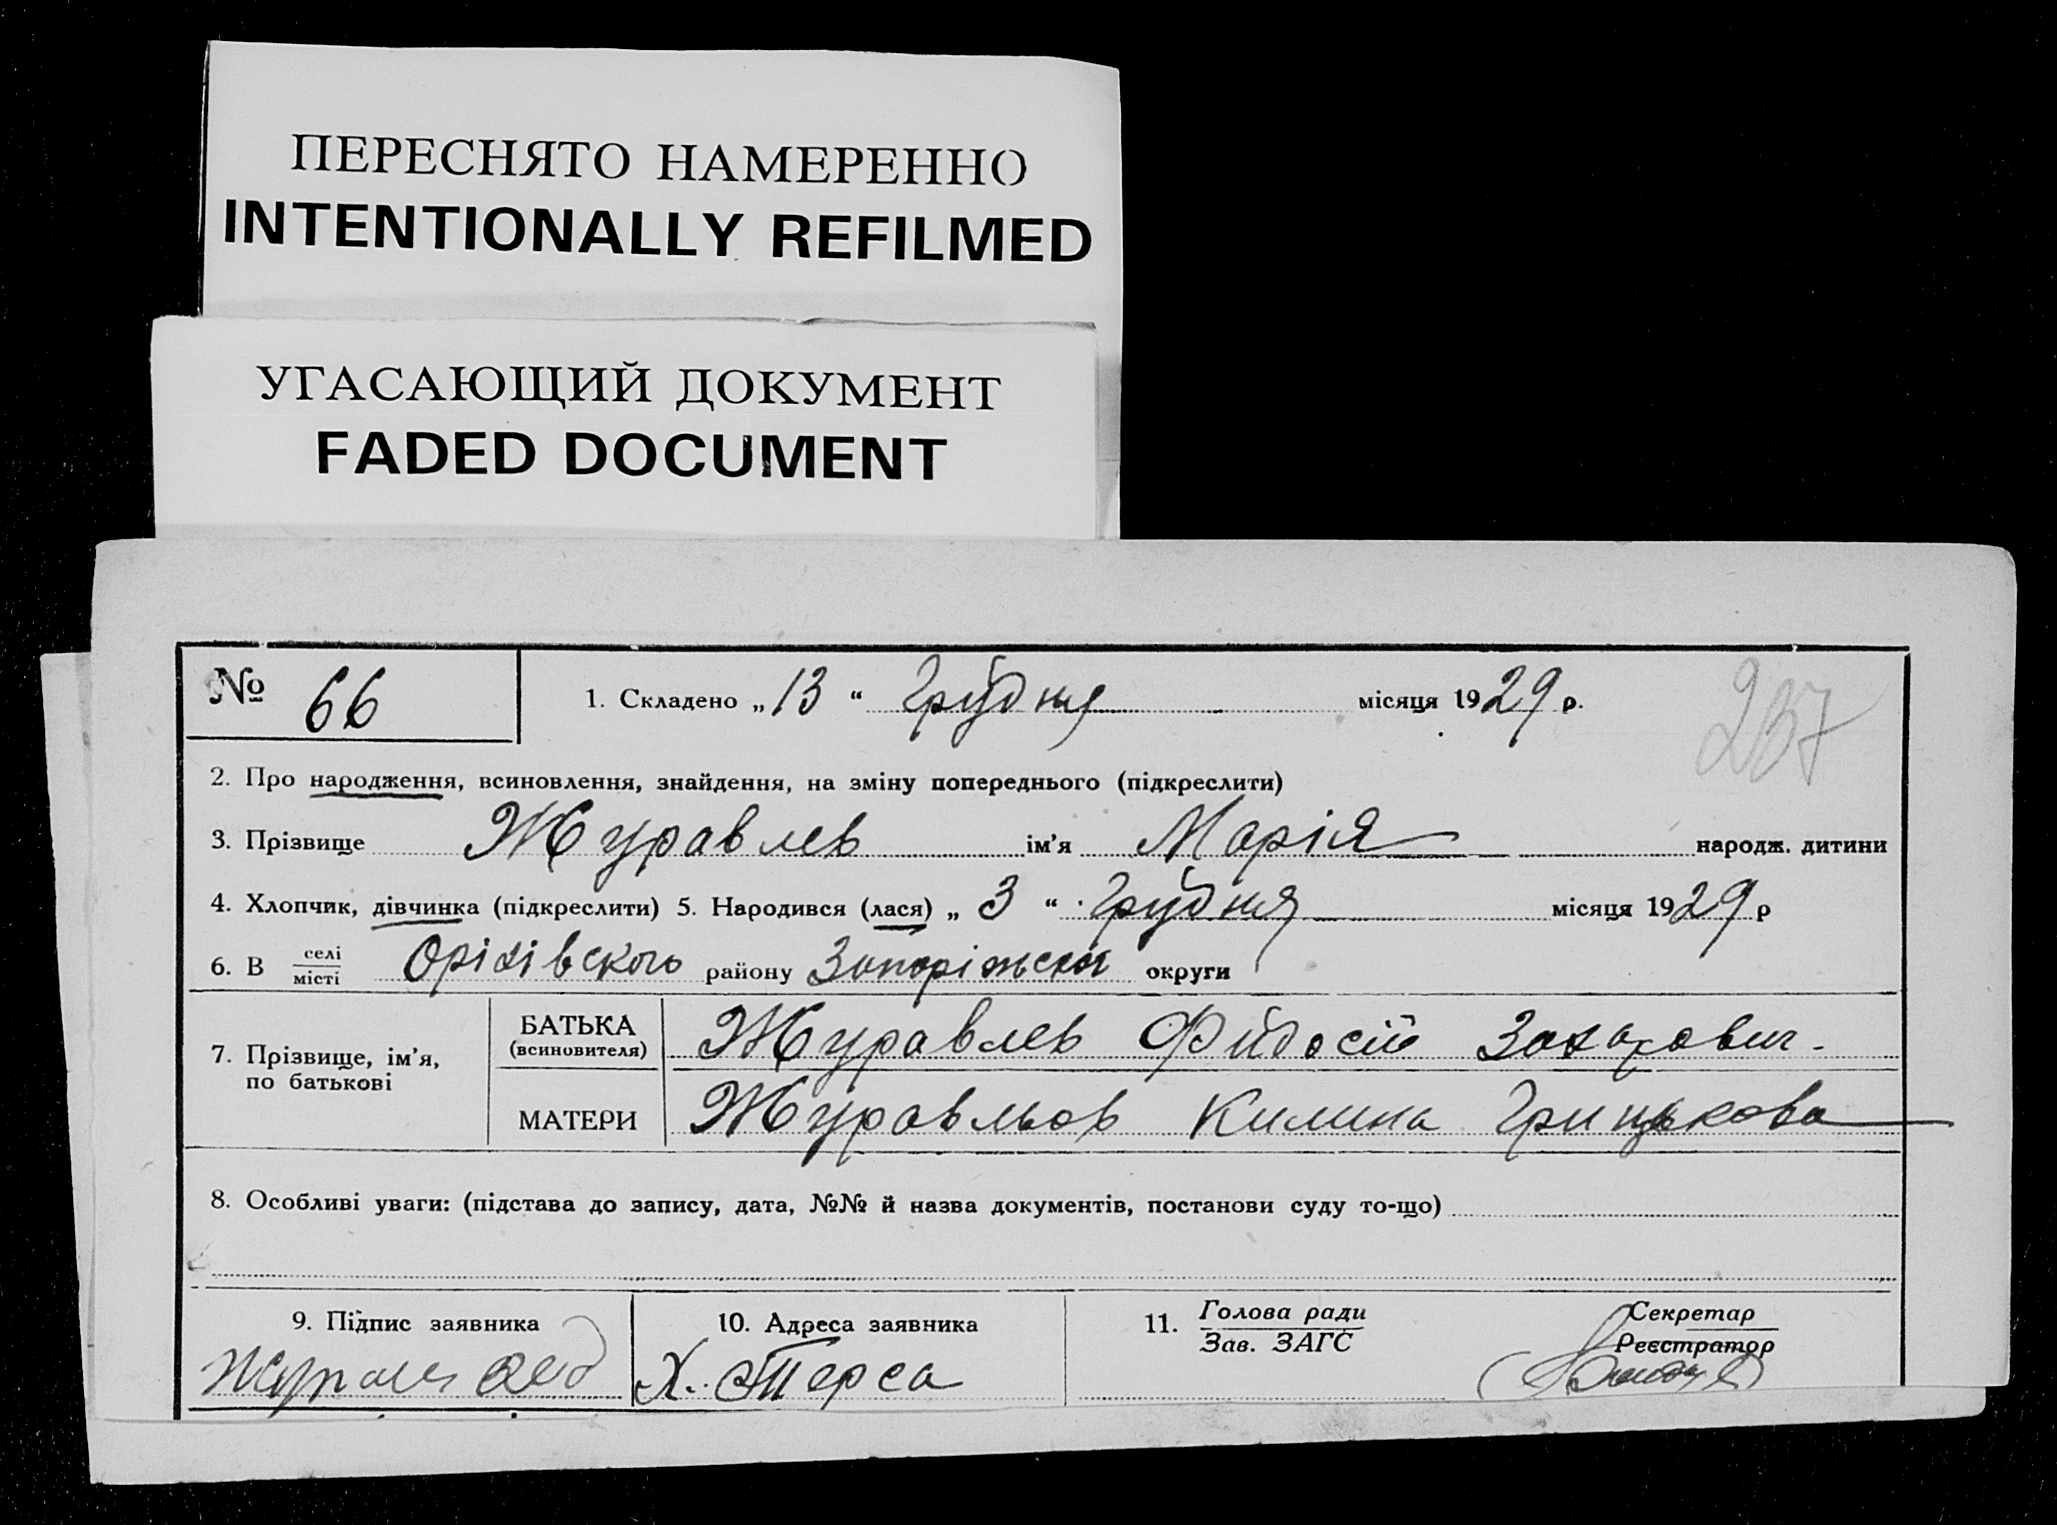 ПЕРЕСНЯТО НАМЕРЕННО
INTENTIONALLY REFILMED
УГАСАЮЩИЙ ДОКУМЕНТ
FADED DOCUMENT
№ 66
1. Складено „13“ Грудня місяця 1929 р.
237
2. Про народження, всиновлення, знайдення, на зміну попереднього (підкреслити)
3. Прізвище Журавлев ім'я Марія народж. дитини
4. Хлопчик, дівчинка (підкреслити) 5. Народився (лася) „3“ Грудня місяця 1929 р
6. В селі місті Оріхівского району Запоріжської округи
7. Прізвище, ім'я, по батькові
БАТЬКА (всиновителя) Журавлев Фидосій Захарович.
МАТЕРИ Журавльов Килина Грицькова
8. Особливі уваги: (підстава до запису, дата, №№ й назва документів, постанови суду то-що)
9. Підпис заявника
10. Адреса заявника
Х. Терса
11. Голова ради Зав. ЗАГС
Секретар Реєстратор